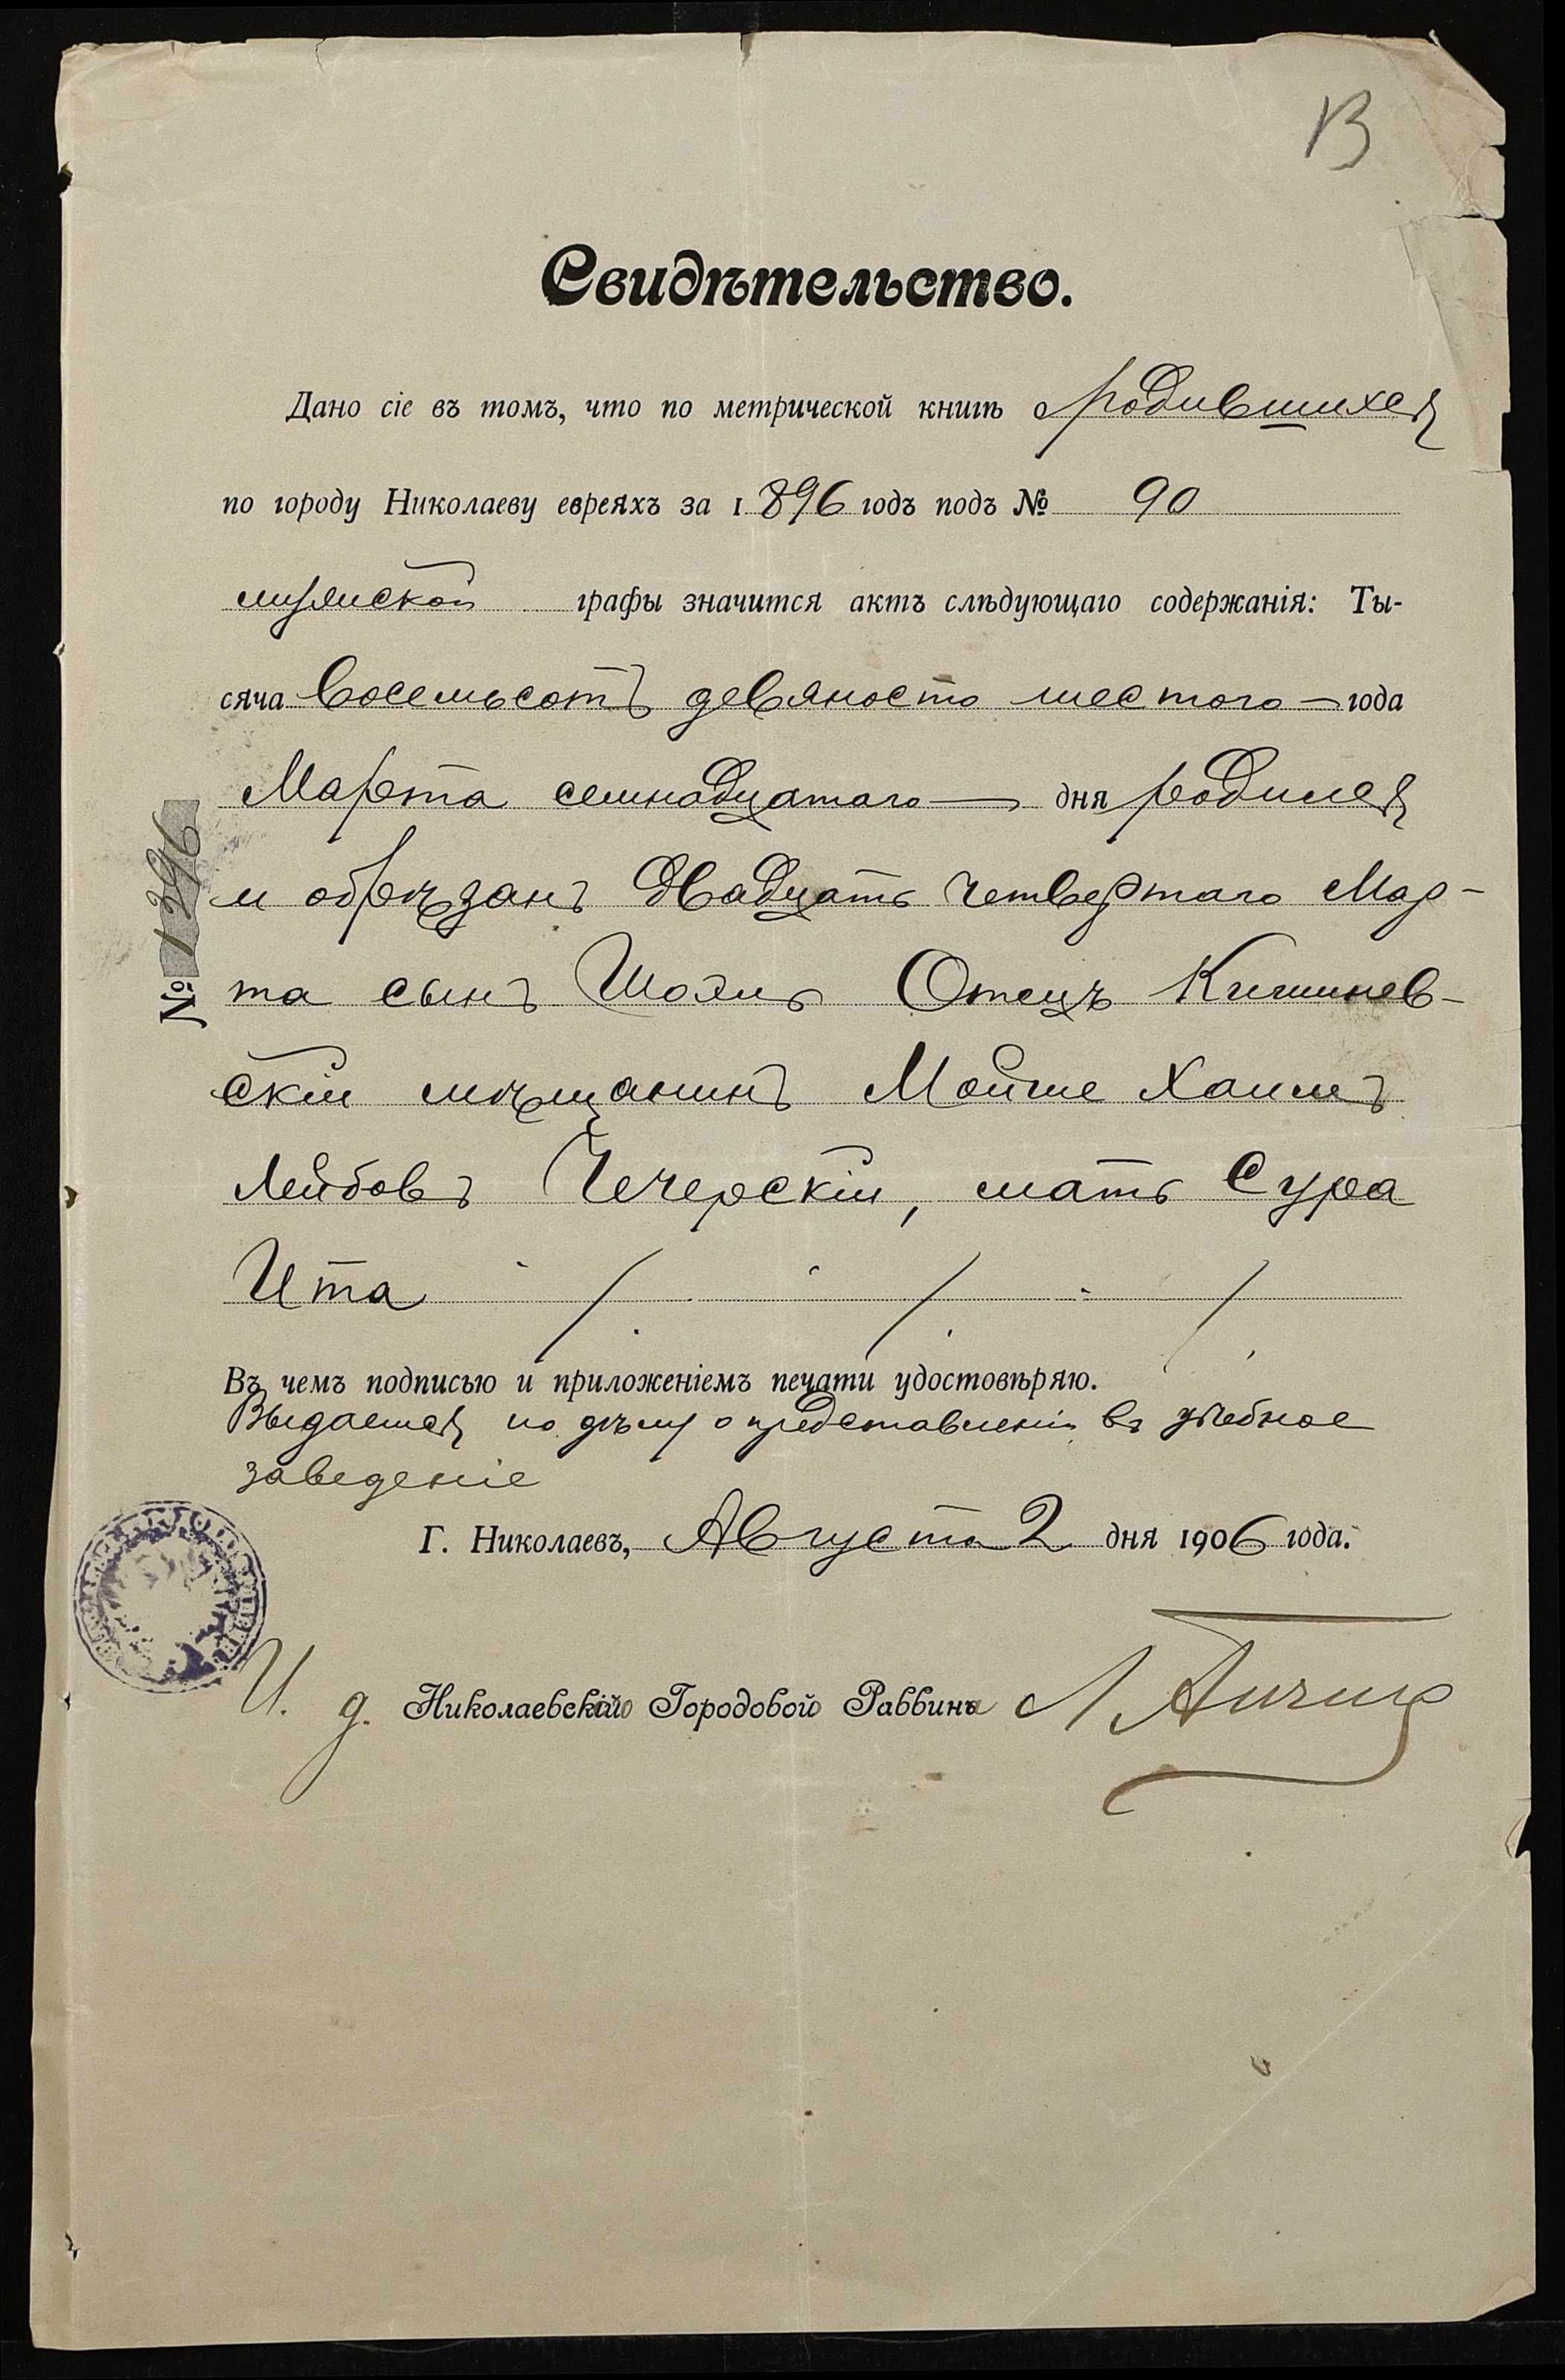 13
Свидѣтельство.
Дано сіе въ томъ, что по метрической книгѣ о родившихся
по городу Николаеву евреяхъ за 1896 годъ подъ № 90
мужской графы значится актъ слѣдующаго содержанія: Ты-
сяча восемьсотъ девяносто шестого — года
Марта семнадцатаго — дня родился
и обрѣзанъ двадцать четвертаго Мар-
та сынъ Шоэль Отецъ Кишинев-
скій мѣщанинъ Мойше Хаимъ
Лейбовъ Чечерскій, мать Сура
Ита
Въ чемъ подписью и приложеніемъ печати удостовѣряю.
Выдается по дѣлу о представленіи въ учебное
заведеніе
Г. Николаевъ, Августа 2 дня 1906 года.
И. д. Николаевскаго Городовой Раввина
№ 1396